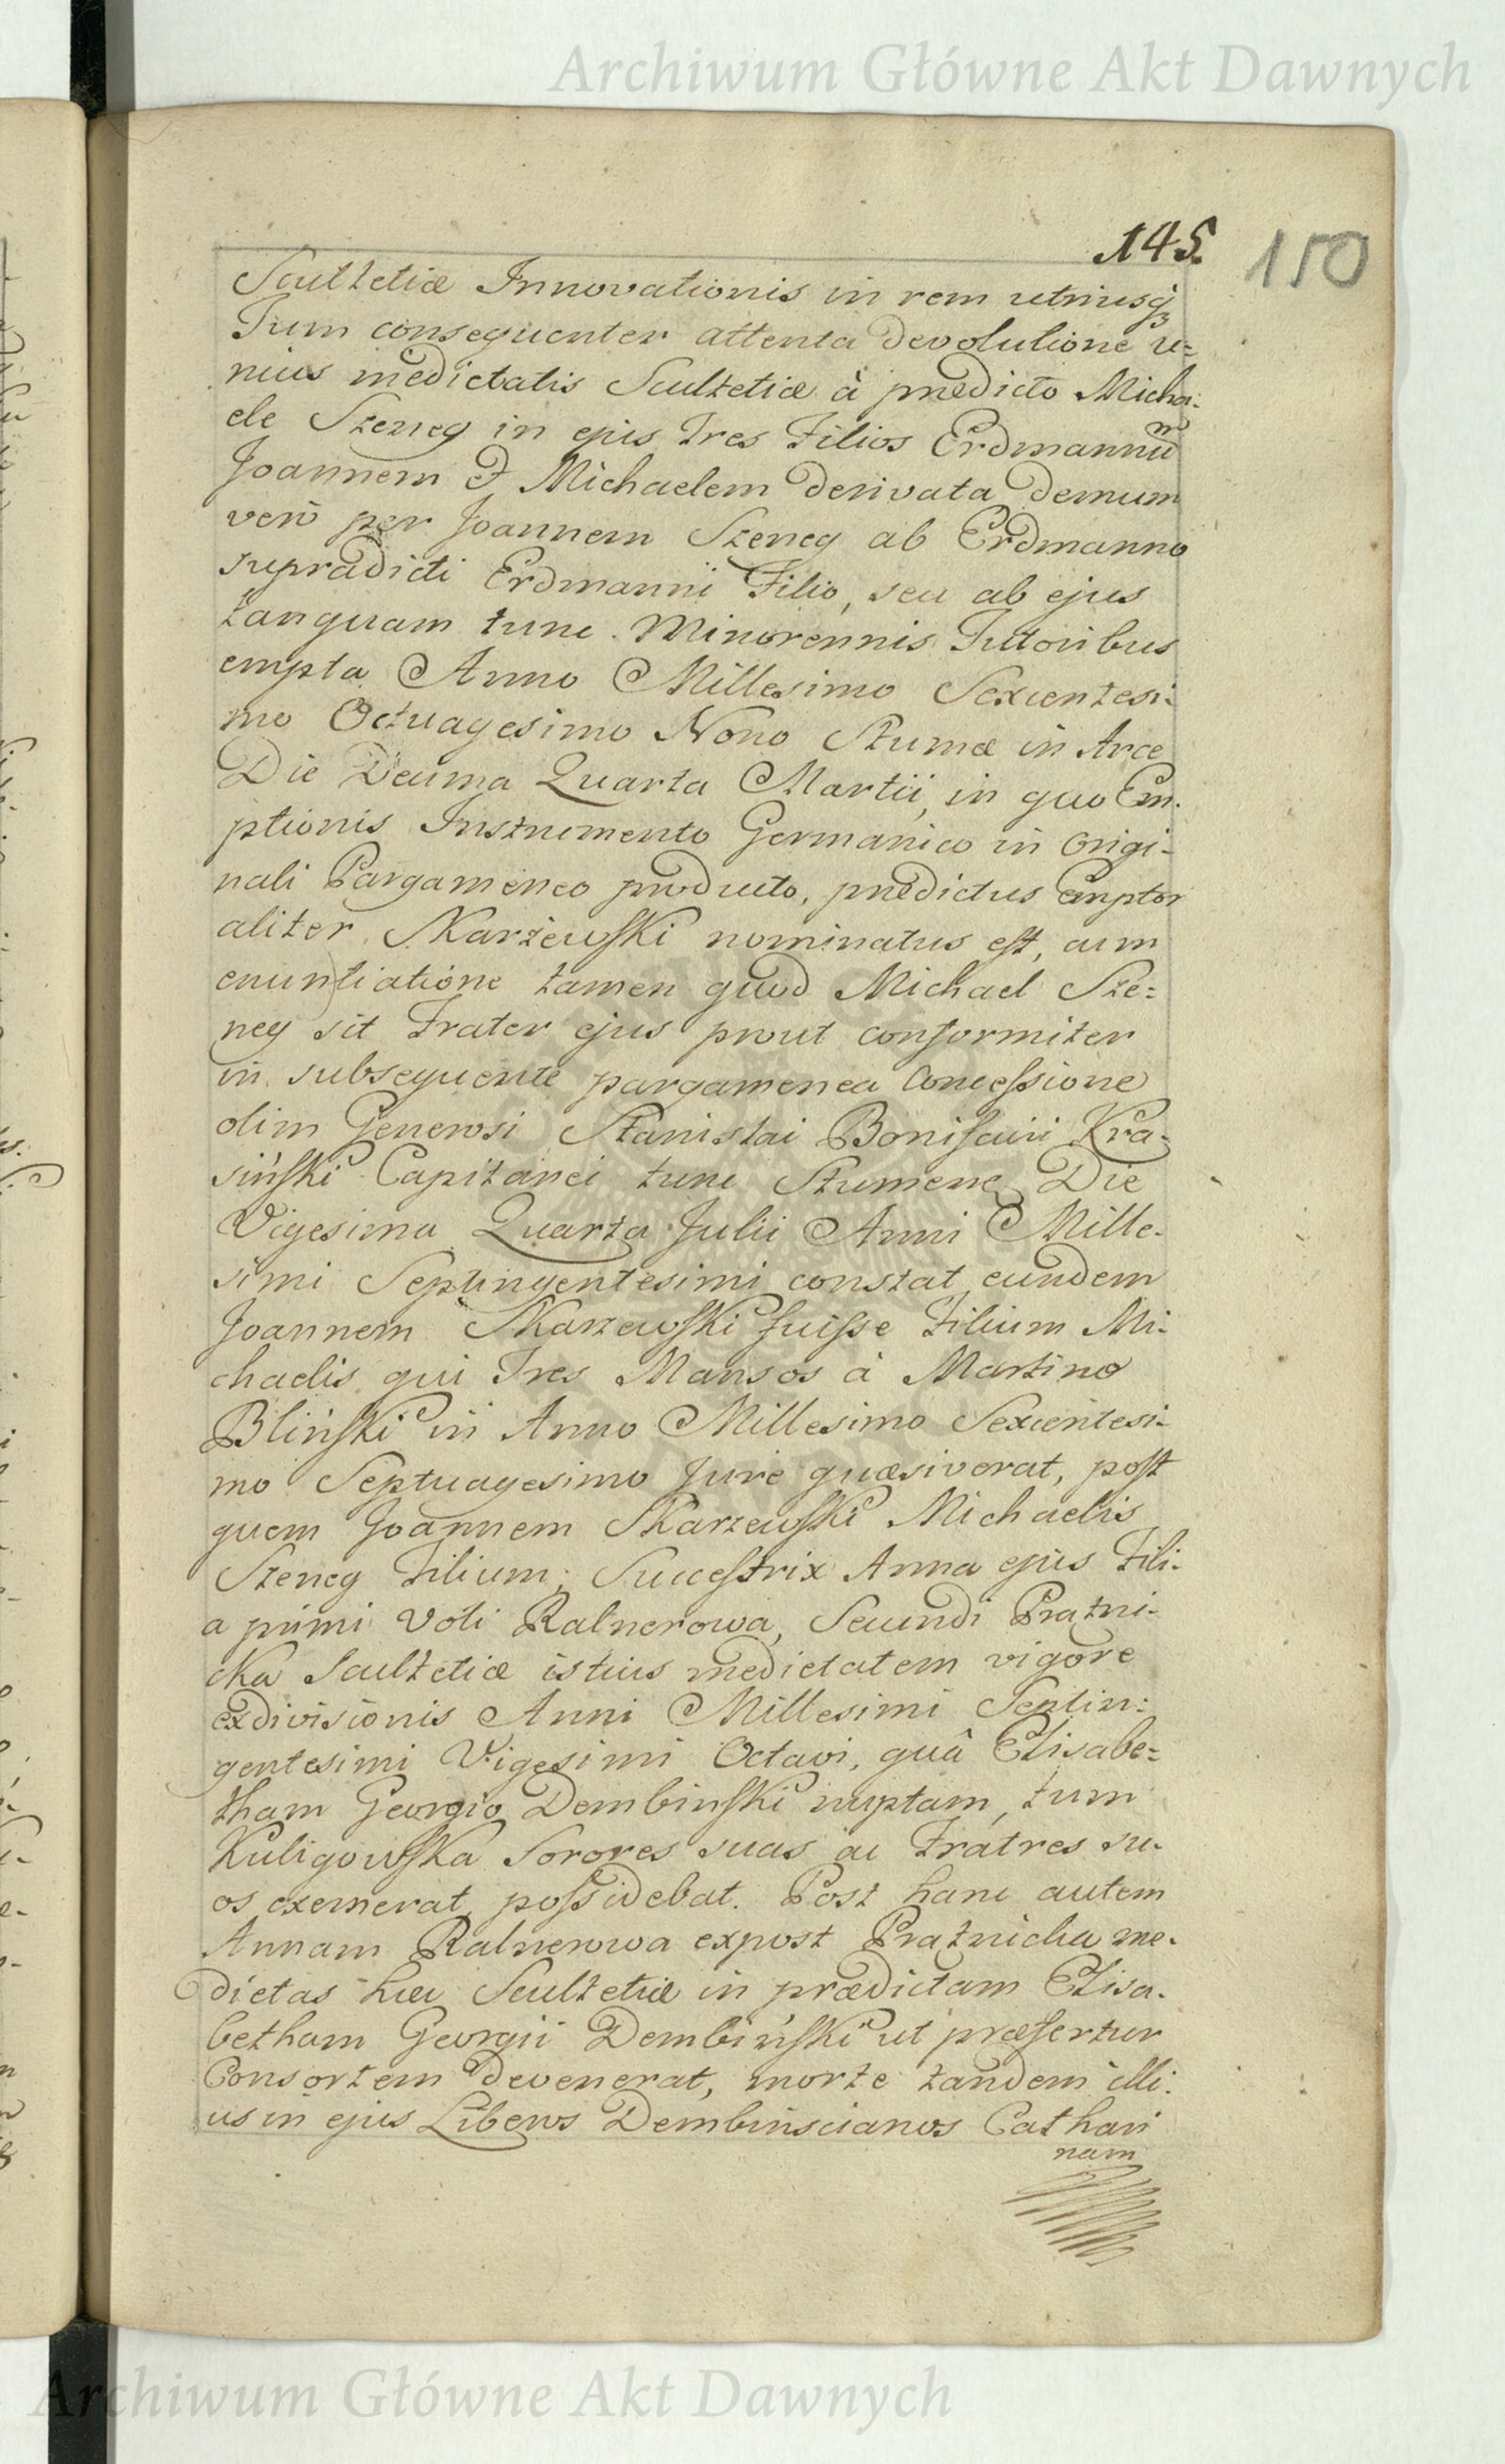 Archiwum Główne Akt Dawnych
145.
150
Scultetiæ Innovationis in rem utriusq̃
Tum consequenter attenta devolutione u=
nius medietatis Scultetiæ à prædicto Micha-
ele Szeneg in ejus Tres Filios Erdmannũm
Joannem & Michaelem derivata demum
verò per Joannem Szeneg ab Erdmanno
supradicti Erdmanni Filio, seu ab ejus
tanquam tunc Minorennis Tutoribus
empta Anno Millesimo Sexcentesi-
mo Octuagesimo Nono Stumæ in Arce
Die Decima Quarta Martii, in quo Em-
ptionis Instrumento Germanico in Origi-
nali Pargameneo producto, prædictus Emptor
aliter Skarżewski nominatus est, cum
enuntiatione tamen quod Michael Sze=
neg sit Frater ejus prout conformiter
in subsequente pargamenea Concessione
olim Generosi Stanislai Bonifacii Kra-
siński Capitanei tunc Stumens Die
Vigesima Quarta Julii Anni Mille-
simi Septingentesimi constat eundem
Joannem Skarzewski fuisse Filium Mi-
chaelis qui Tres Mansos à Martino
Bliński in Anno Millesimo Sexcentesi-
mo Septuagesimo Jure quæsiverat, post
quem Joannem Skarzewski Michaelis
Szeneg Filium; Successtrix Anna ejus Fili-
a primi Voti Ralnerowa, Secundi Pratni-
cka Scultetiæ istius medietatem vigore
exdivisionis Anni Millesimi Septin-
gentesimi Vigesimi Octavi, quâ Elisabe=
tham Georgio Dembinski nuptam, tum
Kuligowska Sorores suas ac Fratres su-
os exemerat, possidebat. Post hanc autem
Annam Ralnerowa expost Pratnicka me-
dietas hæc Scultetiæ in prædictam Elisa-
betham Georgii Dembiński ut præfertur
Consortem devenerat, morte tandem illi-
us in ejus Liberos Dembinscianos Cathari
nam
Archiwum Główne Akt Dawnych